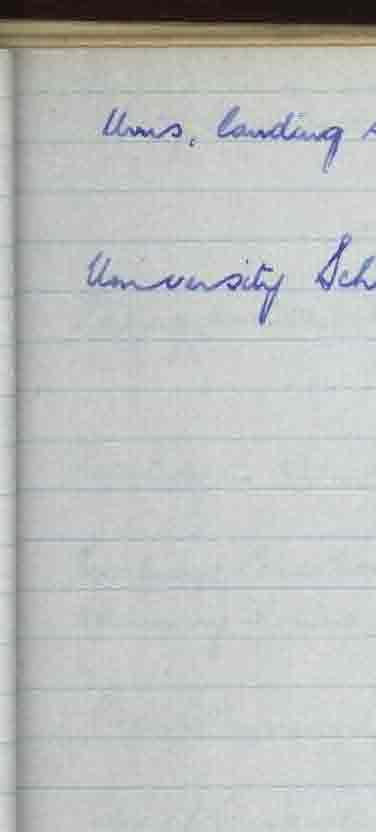 Unis, landing
University Sch